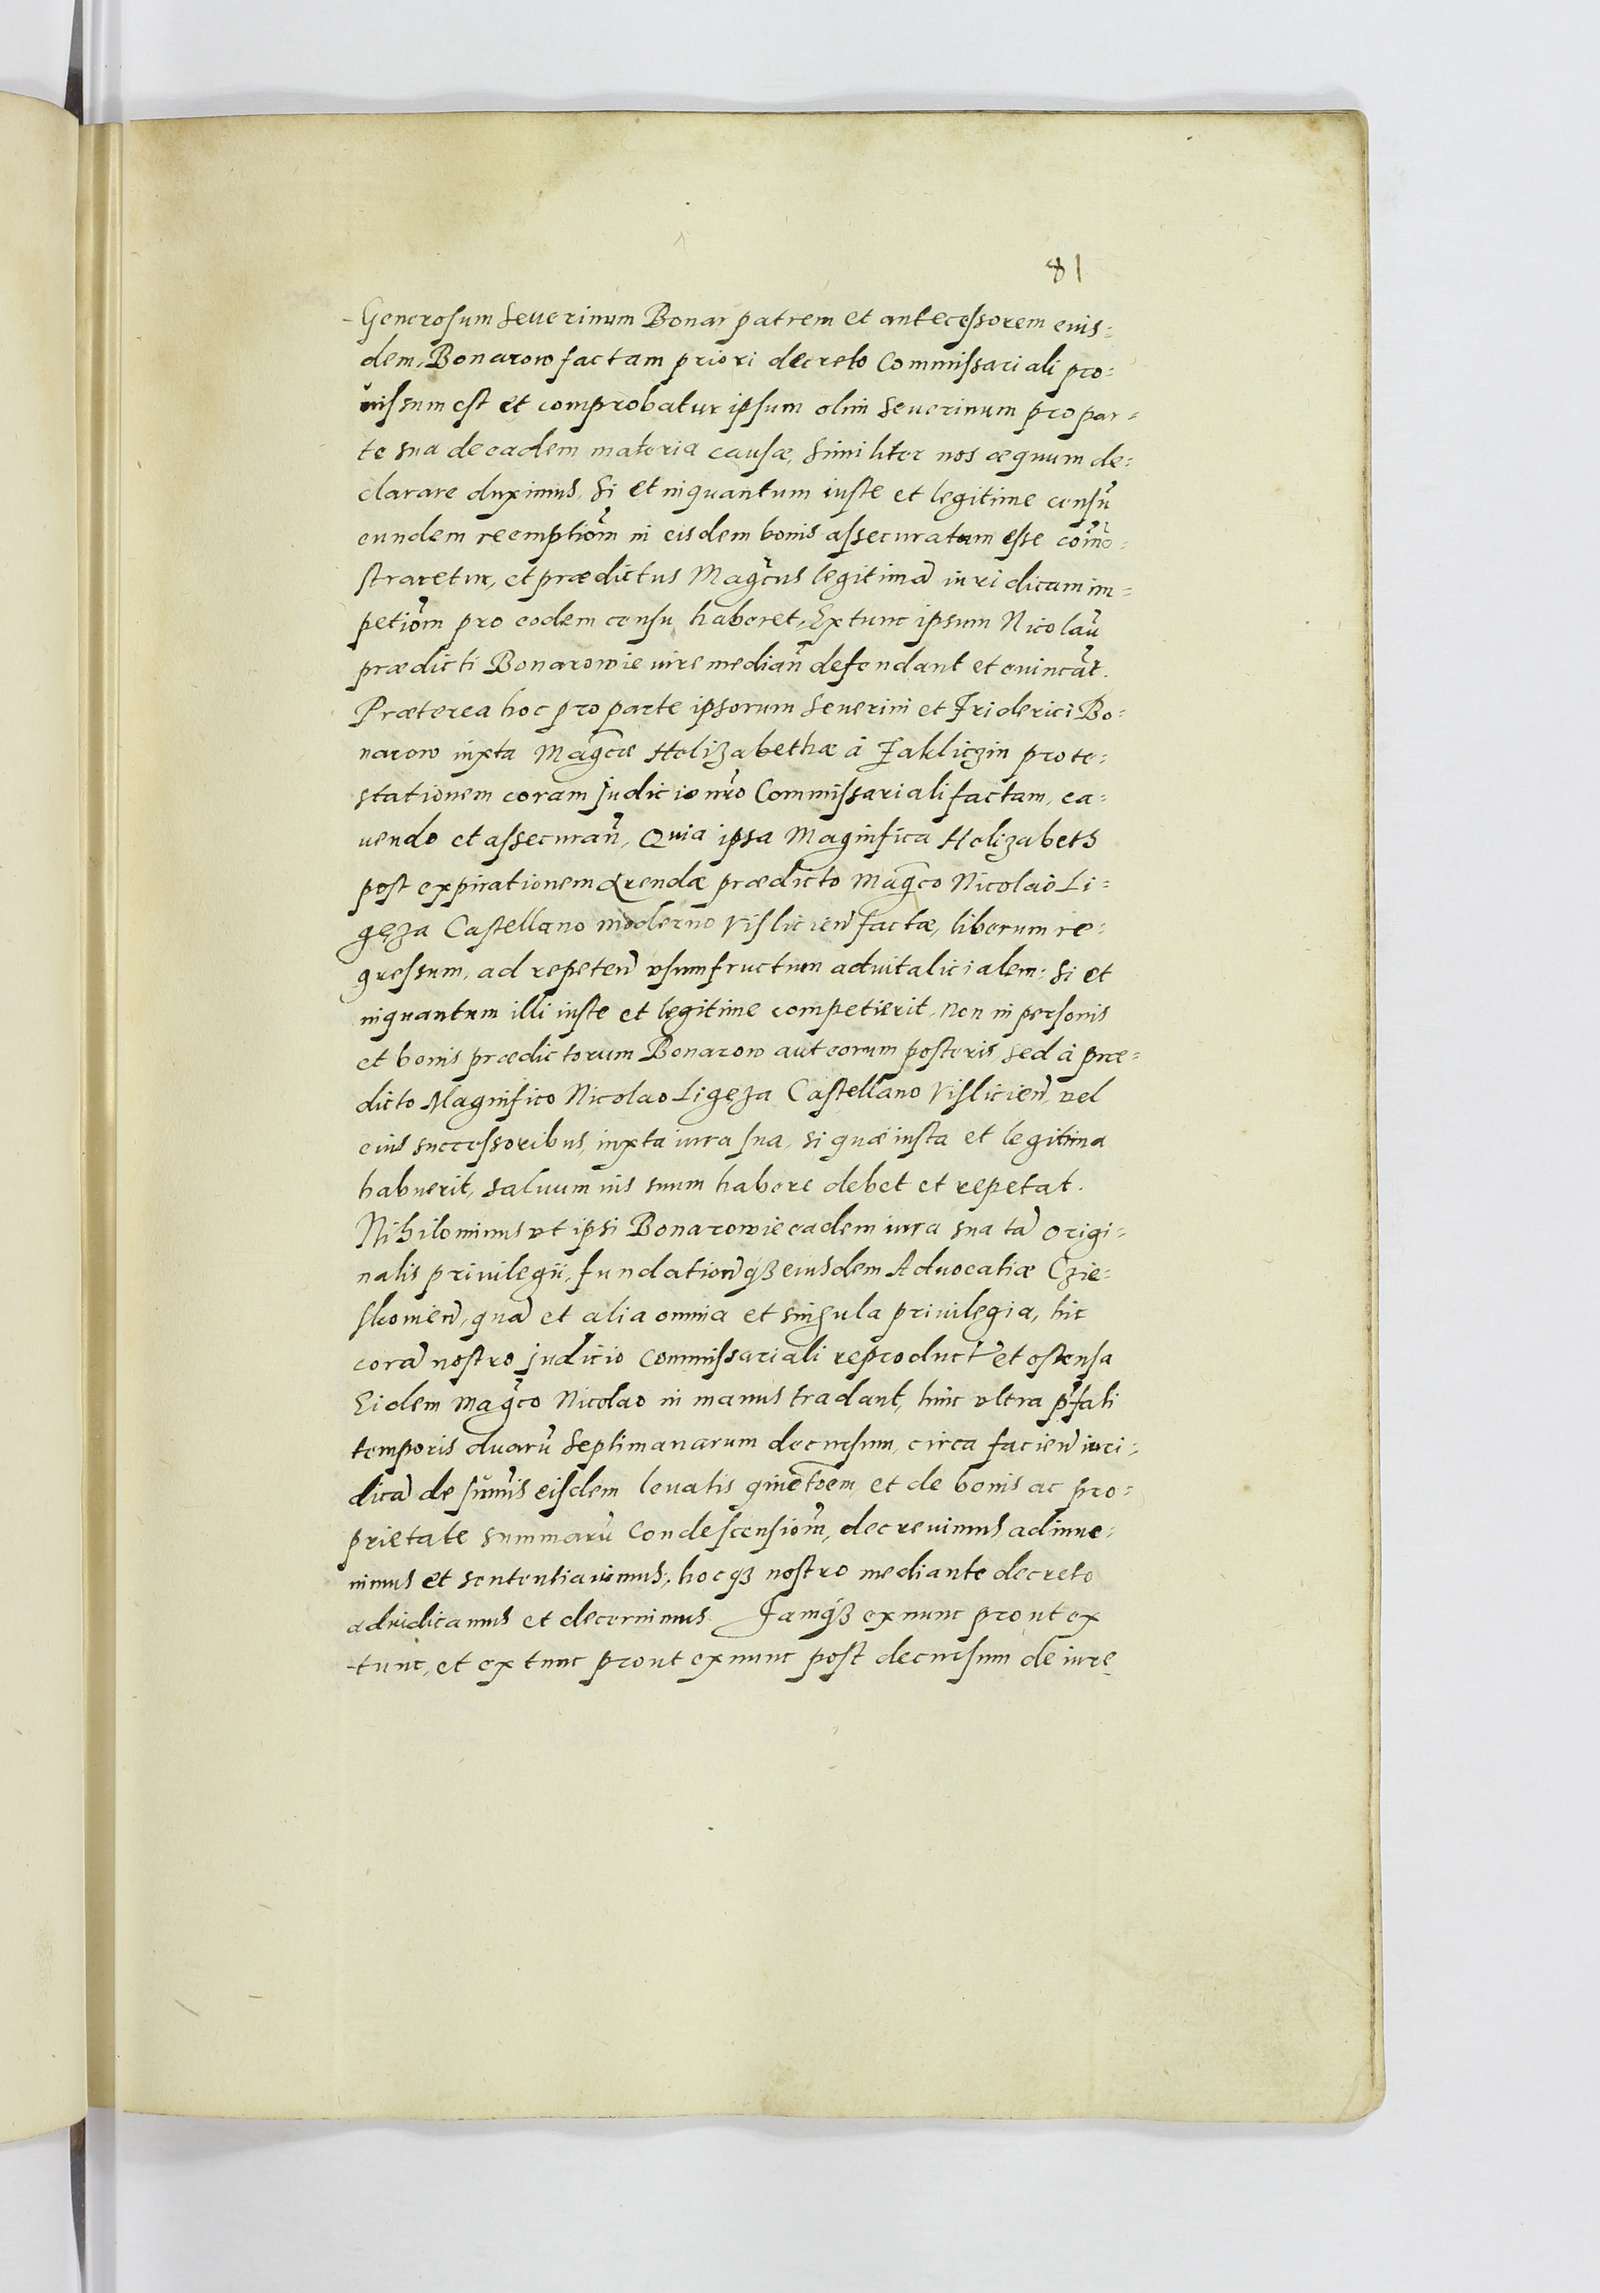 81
Generosum Seuerinum Bonar patrem et antecessorem eius=
dem, Bonarow factam priori decreto Commissariali pro=
uissum est et comprobatur ipsum olim Seuerinum pro par=
te sua de eadem materia causæ, Similiter nos æquum de=
clarare duximus, Si et inquantum iuste et legitime censũ
eundem reemptiõm in eisdem bonis assecuratum esse cõmõ=
straretur, et prædictus Magcus legitimã iuridicam im=
petiõm pro eodem censu haberet, Ex tunc ipsum Nicolaũ
prædicti Bonarowie iure median̄ defendant et euincãt.
Præterea hoc pro parte ipsorum Seuerini et Friderici Bo=
narow iuxta Magcæ Helizabethæ à Zakliczin prote=
stationem coram Judicio nr̃o Commissariali factam, ca=
uendo et assecuran̄, Quia ipsa Magnifica Helizabeth
post expirationem Arendæ prædicto Magco Nicolao Li=
geza Castellano moderno Vislicien̄ factæ, liberum re=
gressum, ad repeten̄ vsumfructum aduitalicialem: Si et
inquantum illi iuste et legitime competierit, Non in personis
et bonis prædictorum Bonarow aut eorum posteris, sed à præ=
dicto Magnifico Nicolao Ligęza Castellano Vislicien̄, vel
eius successoribus, iuxta iura sua, si quæ iusta et legitima
habuerit, saluum ius suum habere debet et repetat.
Nihilominus vt ipsi Bonarowie eadem iura sua tã origi=
nalis priuilegii, fundation̄qȝ eiusdem Aduocatiæ Czie=
skowien̄, quã et alia omnia et singula priuilegia, hic
corã nostro judicio commissariali reproducta et ostensa
Eidem Magco Nicolao in manus tradant, hinc vltra p̃fati
temporis duarũ Septimanarum decursum, circa facien̄ iuri=
dicã de sum̃is eisdem leuatis quietõem et de bonis ac pro=
prietate summarũ Condescensiõm, decreuimus, adinue=
nimus et sententiauimus, hocqȝ nostro mediante decreto
adiudicamus et decernimus. Jamqȝ ex nunc prout ex
tunc, et ex tunc prout ex nunc post decursum de iure